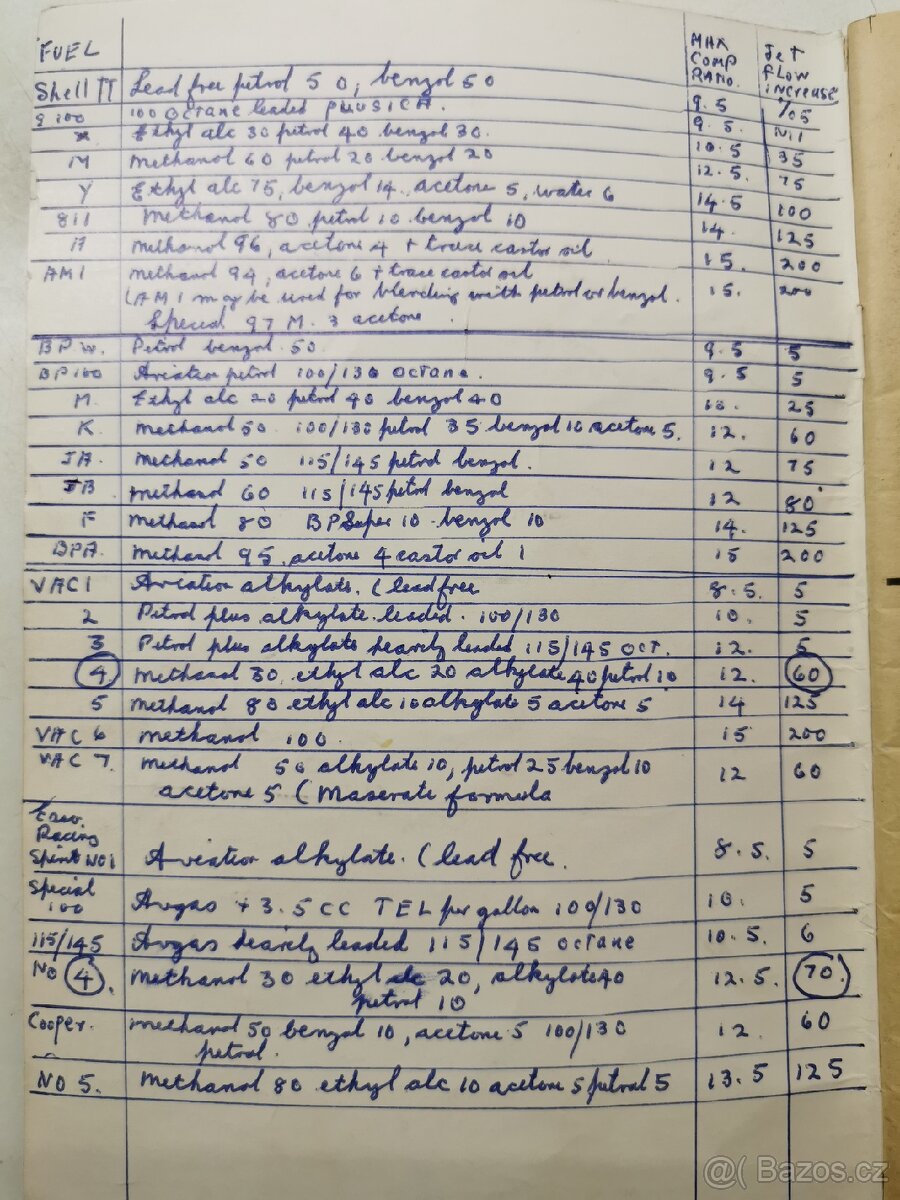 FUEL MAX COMP RATIO. JET FLOW INCREASE
Shell TT Lead free petrol 50, benzol 50 9.5 %5
100 100 octane leaded PLUS ICA. 9.5. Nil
Ethyl alc 30 petrol 40 benzol 30. 10.5 35
M methanol 60 petrol 20 benzol 20 12.5. 75
Y Ethyl alc 75, benzol 14. acetone 5, water 6 14.5 100
811 Methanol 80 petrol 10 benzol 10 14. 125
A methanol 96, acetone 4 + trace castor oil 15. 200
AM1 methanol 94, acetone 6 + trace castor oil 15. 200
(AM1 may be used for blending with petrol or benzol.
Special 97 M. 3 acetone.
BP W. Petrol benzol 50. 9.5 5
BP 100 Aviation petrol 100/130 octane. 9.5 5
M. Ethyl alc 20 petrol 40 benzol 40 10. 25
K methanol 50 100/130 petrol 35 benzol 10 acetone 5. 12. 60
JA. Methanol 50 115/145 petrol benzol. 12 75
JB. Methanol 60 115/145 petrol benzol 12 80
F methanol 80 BP Super 10. benzol 10 14. 125
BPA. Methanol 95, acetone 4 castor oil 1 15 200
VAC1 Aviation alkylate. (lead free 8.5. 5
2 Petrol plus alkylate leaded. 100/130 10. 5
3 Petrol plus alkylate heavily leaded 115/145 OCT. 12. 5
4 Methanol 30 ethyl alc 20 alkylate 40 petrol 10 12. 60
5 Methanol 80 ethyl alc 10 alkylate 5 acetone 5 14 125
VAC 6 Methanol 100. 15 200
VAC 7. Methanol 50 alkylate 10, petrol 25 benzol 10 12 60
acetone 5 (Maserate formula
Esso.
Racing
Spirit NO1 Aviation alkylate. (lead free. 8.5. 5
Special 100 Avgas + 3.5 CC TEL per gallon 100/130 10. 5
115/145 Avgas heavily leaded 115/145 octane 10.5. 6
NO 4. Methanol 30 ethyl alc 20, alkylate 40 12.5. 70.
petrol 10
Cooper. methanol 50 benzol 10, acetone 5 100/130 12. 60
petrol.
NO 5. Methanol 80 ethyl alc 10 acetone 5 petrol 5 13.5 125
Bazos.cz